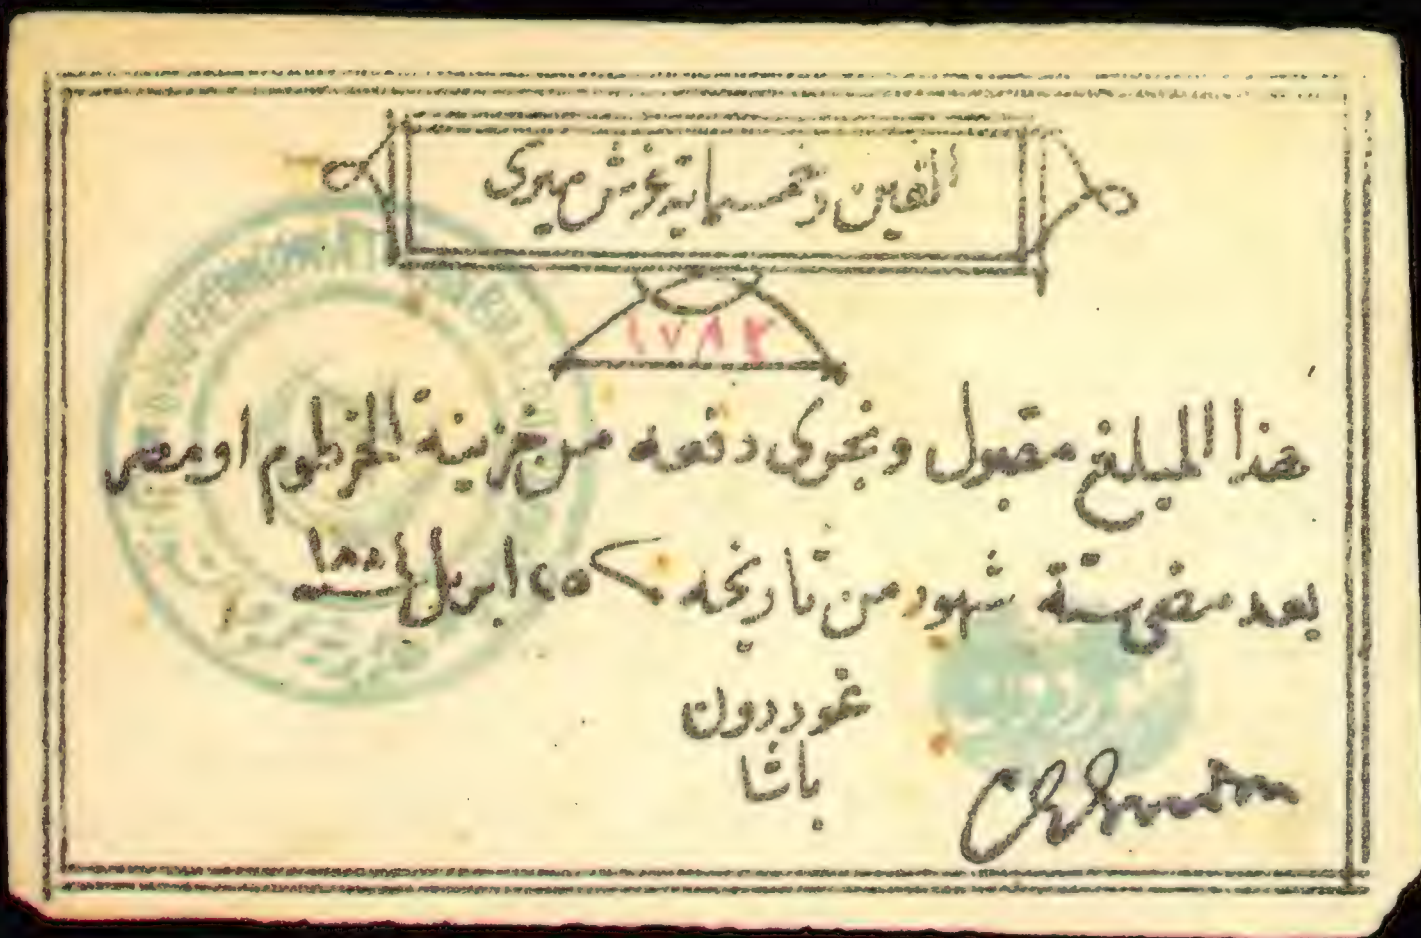 الفين وخمسماية غرش ميرى
١٧٨٢
هذا المبلغ مقبول ويجرى دفعه من خزينة الخرطوم او مصر
بعد مضى ستة شهور من تاريخه ٢٥ ابريل ١٨٨٤ سنة
غوردون
باشا